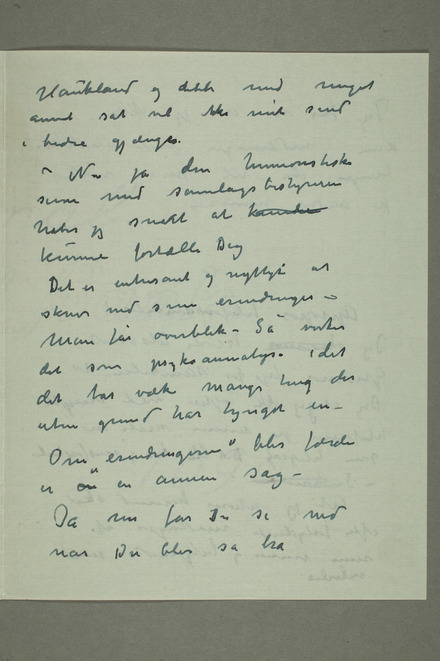 Haukland og dette med meget
annet sat vel ikke mit sind
i bedre gjænge.
– Nu ja den humoristiske
scene med samlagsbestyreren
haber jeg snart at kunde
kunne fortælle Dig
Det er interesant og nyttigt at
skrive ned sine erindringer –
Man får overblik – Så virker
det som psykoanalyse i det
det tar væk mange ting der
uten grund har tynget en –
Om "erindringerne" blir færde
er en en annen sag –
Ja nu får Du se ned
når Du blir så bra